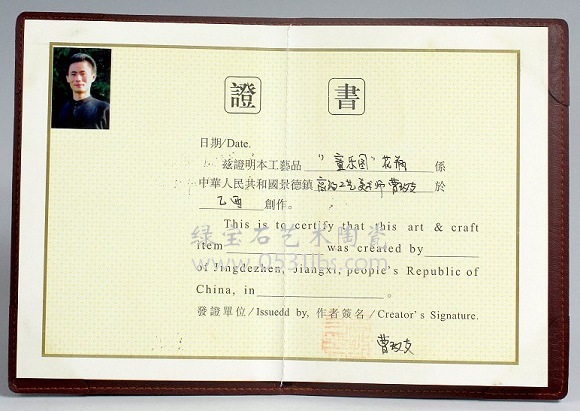 證書
日期/Date.
茲證明本工藝品 "童乐图"花瓶 係
中華人民共和國景德鎮 高级工艺美术师 曹 於
乙酉 創作。
This is to certify that this art & craft
item was created by
of Jingdezhen, Jiangxi, people's Republic of
China, in .
發證單位/Issuedd by, 作者簽名/Creator's Signature.
曹
绿宝石艺术陶瓷
www.0531lbs.com